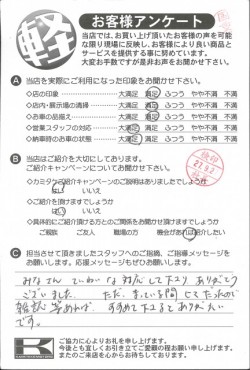 軽
お客様アンケート
当店では、お買い上げ頂いたお客様の声を可能
な限り現場に反映し、お客様により良い商品と
サービスを提供する事に努めています。
大変お手数ですが是非お声をお聞かせ下さい。
A 当店を実際にご利用になった印象をお聞かせ下さい。
◇店の印象 大満足 満足 ふつう やや不満 不満
◇店内・展示場の清掃 大満足 満足 ふつう やや不満 不満
◇お車の品揃え 大満足 満足 ふつう やや不満 不満
◇営業スタッフの対応 大満足 満足 ふつう やや不満 不満
◇納車時のお車の状態 大満足 満足 ふつう やや不満 不満
B 当店はご紹介を大切にしております。
ご紹介キャンペーンについてお聞かせ下さい。
◇カミタウンご紹介キャンペーンのご説明はありましたでしょうか
はい いいえ
◇ご紹介を頂けますでしょうか
はい いいえ
◇具体的にご紹介頂ける方とのご関係をお聞かせ頂けますでしょうか
ご親族 ご友人 職場の方 機会があれば紹介したい
C 担当させて頂きましたスタッフへのご指摘、ご指導メッセージを
お願いします。応援メッセージもぜひお願いします。
みなさん ていねいな対応して下さり ありがとう
ございました。ただ、まっている間
雑誌等あれば、すすめて下さるとありがたい
です。
K
ご協力に心よりお礼を申し上げます。
今後とも宜しくお引き立てご愛顧の程お願い申し上げます。
またのご来店を心からお待ちしております。